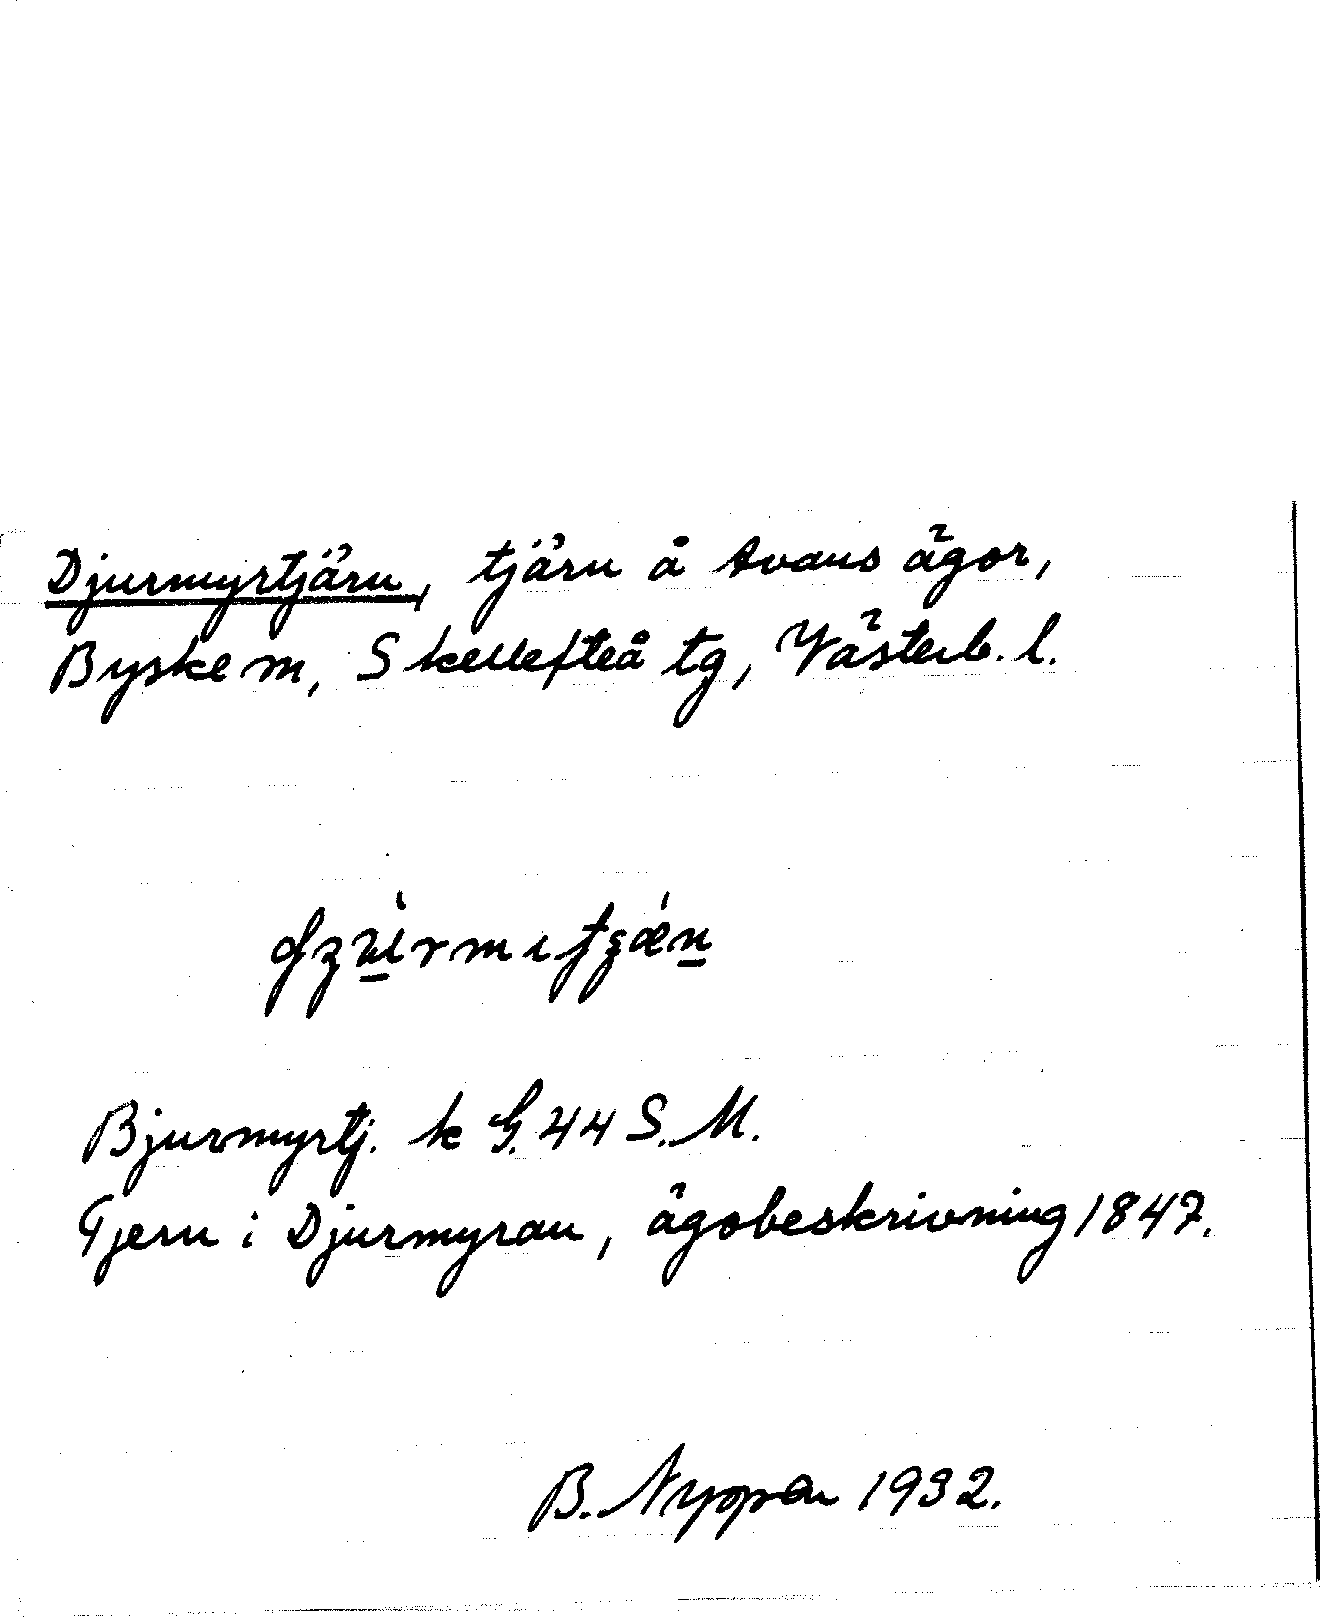 Djurmyrtjärn, tjärn å Avans ägor,
Byske sn, Skellefteå tg, Västerb. l.
Bjurmyrtj. k G. 44 S. M.
Tjern i Djurmyran, ägobeskrivning 1847.
B. Nyman 1932.